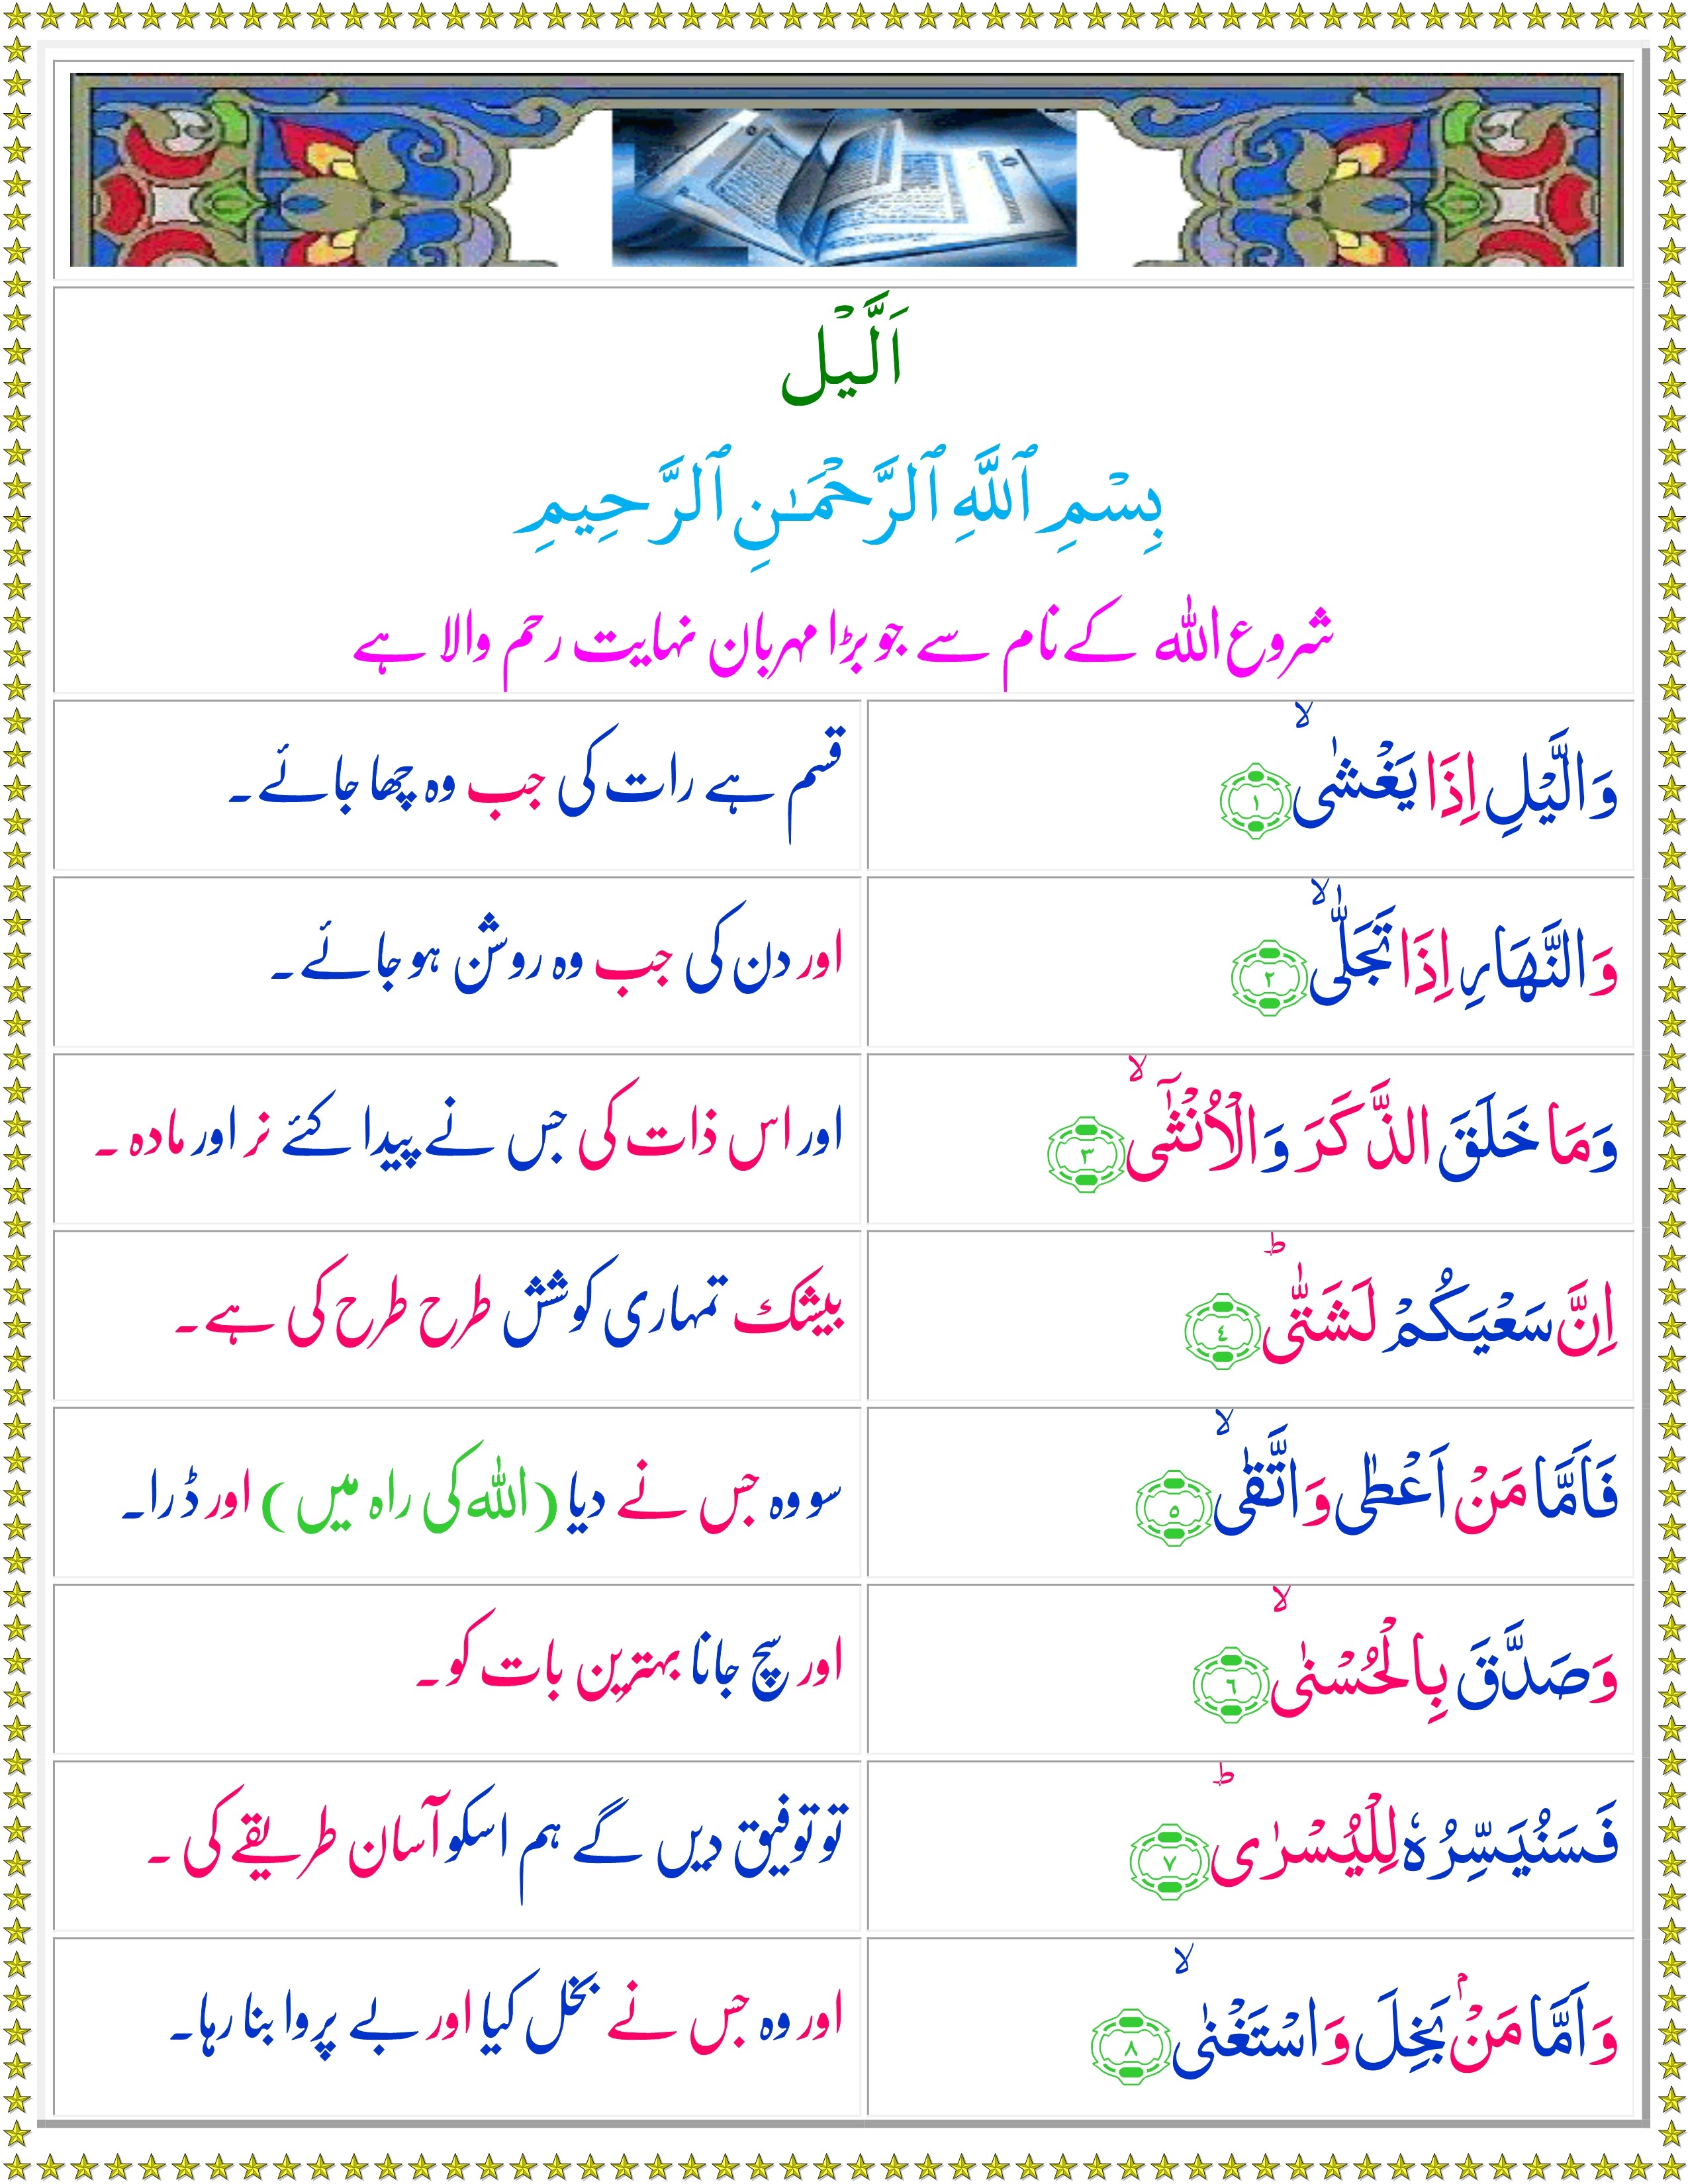 اَلَّيْل
بِسْمِ ٱللَّهِ ٱلرَّحْمَـٰنِ ٱلرَّحِيمِ
شروع اللہ کے نام سے جو بڑا مہربان نہایت رحم والا ہے
وَالَّيْلِ اِذَا يَغْشٰىۙ ﴿۱﴾
قسم ہے رات کی جب وہ چھا جائے۔
وَالنَّهَارِ اِذَا تَجَلّٰىۙ ﴿۲﴾
اور دن کی جب وہ روشن ہو جائے۔
وَمَا خَلَقَ الذَّكَرَ وَالْاُنْثٰٓىۙ ﴿۳﴾
اور اس ذات کی جس نے پیدا کئے نر اور مادہ ۔
اِنَّ سَعْيَكُمْ لَشَتّٰىؕ ﴿٤﴾
بیشک تمہاری کوشش طرح طرح کی ہے۔
فَاَمَّا مَنْ اَعْطٰى وَاتَّقٰىۙ ﴿۵﴾
سو وہ جس نے دیا (اللہ کی راہ میں) اور ڈرا۔
وَصَدَّقَ بِالْحُسْنٰىۙ ﴿٦﴾
اور سچ جانا بہترین بات کو۔
فَسَنُيَسِّرُهٗ لِلْيُسْرٰىؕ ﴿۷﴾
تو توفیق دیں گے ہم اسکو آسان طریقے کی ۔
وَاَمَّا مَنْۢ بَخِلَ وَاسْتَغْنٰىۙ ﴿۸﴾
اور وہ جس نے بخل کیا اور بے پروا بنا رہا۔